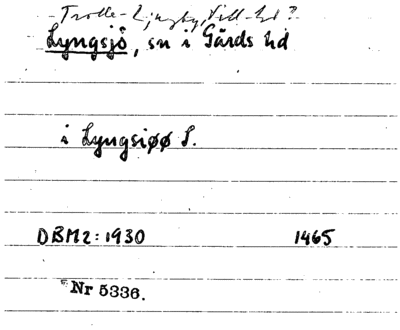 Trolle-Ljungby, Vill-hd?
Lyngsjö, sn i Gärds hd
i Lyngsiøø S.
DBM2:1930 1465
Nr 5336.